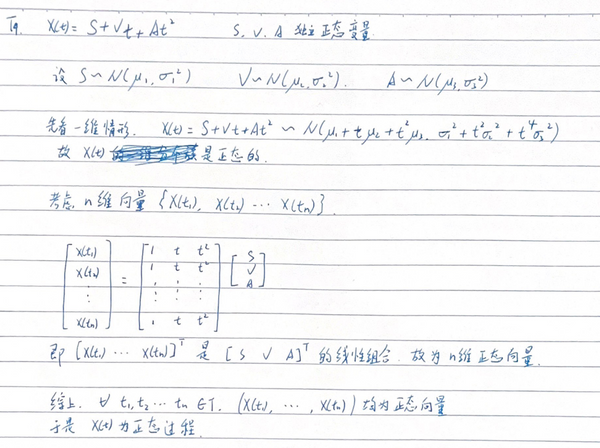 T9. X(t) = S + Vt + At² S. V. A 独立正态变量
设 S ~ N(μ₁, σ₁²) V ~ N(μ₂, σ₂²). A ~ N(μ₃, σ₃²)
先看一维情形. X(t) = S + Vt + At² ~ N(μ₁ + tμ₂ + t²μ₃. σ₁² + t²σ₂² + t⁴σ₃²)
故 X(t) 是正态的.
考虑 n维向量 {X(t₁), X(t₂) ··· X(tₙ)}.
[X(t₁) X(t₂) ⋮ X(tₙ)] = [1 t t² 1 t t² ⋮ ⋮ ⋮ 1 t t²] [S V A]
即 [X(t₁) ··· X(tₙ)]ᵀ 是 [S V A]ᵀ 的线性组合. 故为 n维正态向量.
综上. ∀ t₁, t₂ ··· tₙ ∈ T. (X(t₁), ···, X(tₙ)) 均为正态向量
于是 X(t) 为正态过程.